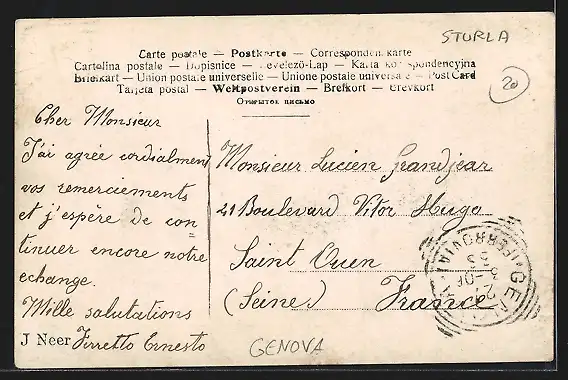 STURLA
20
Carte postale — Postkarte — Correspondenzkarte
Cartolina postale — Dopisnice — Levelező-Lap — Karta korespondencyjna
Briefkart — Union postale universelle — Unione postale universale — Post Card
Tarjeta postal — Weltpostverein — Brefkort — Brevkort
Открытое письмо
Cher Monsieur
J'ai agrée cordialment
vos remerciements
et j'espère de con-
tinuer encore notre
echange.
Mille salutations
J Neer Firretto Ernesto
Monsieur Lucien Grandjear
21 Boulevard Vitor Hugo
Saint Ouen
(Seine) France
GENOVA